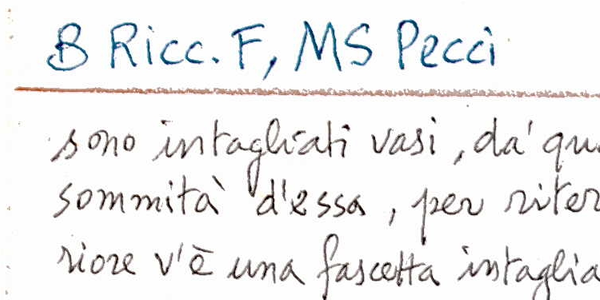 B Ricc. F, MS Pecci
sono intagliati vasi, da' qu
sommità d'essa, per riter
riore v'è una fascetta intaglia